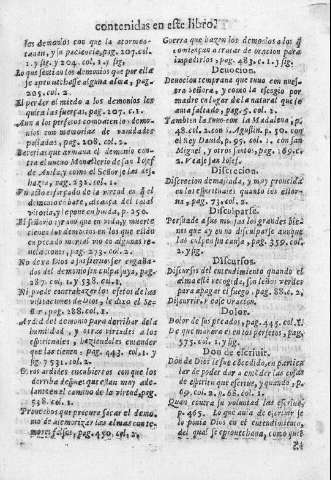 contenidas en este libro.
los demonios con que la atormen-
tauan, y su paciencia, pag. 207. col.
1. y sig y 204. col. 1. y sig
Lo que sentian los demonios que por ella
se aprouechasse alguna alma, pag.
205. col. 2.
El perder el miedo a los demonios les
quita las fuerças, pag. 107. c. 1.
Aun a los perfetos acometen demonios
con memorias de vanidades
passadas, pag. 106. col. 2.
Baterias que armaua el demonio con-
tra el nueuo Monesterio de San Iosef
de Auila, y como el Señor le
hazia, pag. 231. col. 1.
demonio combate, diuisa del
Vitoria, y se pone en huida, p. 250.
tiernos los demonios en los que están
en pecado mortal vio en algunas re-
uelaciones, pag. 273. col. 2.
No dexa Dios a los suyos ser engaña-
dos del demonio sin culpa suya, pag.
287. col. 1. y 538. col. 1.
Ni puede contrahazer los efetos de las
visitaciones de Dios, le dixo el Se-
ñor, pag. 288. col. 1.
Ardid del demonio para derribar de la
humildad, y otras virtudes a los
espirituales, haziendoles entender
que las tienen, pag. 443. col. 1. y
pag. 531. col. 1.
Otros ardides encubiertos con que los
derriba despues que estan muy ade-
lante en el camino de la virtud, pag.
538. col. 1.
Prouechos que procura sacar el demo-
nio de atemorizar las almas con te-
mores falsos, pag. 450. col. 2.
Guerra que hazen los demonios a los que
comiençan a tratar de oracion para
impedirlos, pag. 483. c. 1. y sig.
Deuocion.
Deuocion temprana que tuuo con nues-
tra Señora, y como la escogio por
madre en lugar de la natural que le
auia faltado, pag. 5. col. 1.
Tambien la tuuo con la Madalena, p.
48. col. 2. con S. Agustin. p. 50. con
el Rey Dauid, p. 95. col. 1. con san
Miguel, y otros santos, pag. 169. c.
2. Veaje san Iosef.
Discrecion.
Discrecion demasiada, y muy proueida
en los espirituales quanto los estor-
ua, pag. 73. col. 2.
Disculparse.
Persuade a sus monjas los grandes bie-
nes que ay en no disculparse aunque
las culpen sin culpa, pag. 359. col.
2. y sig.
Discursos.
Discursos del entendimiento quando el
alma esta recogida, son leños verdes
para apagar el fuego, pag. 88. c. 2,
Discurrir, veaje Oracion.
Dolor.
Dolor de sus pecados, pag. 445. col. 1.
De que manera es en los perfetos, pag.
535. c. 1.
Don de escriuir.
Don de Dios le fue concedido, en particu-
lar de poder dar a entender las cosas
de espiritu que escriue, y quando, p.
69. col. 2. p. 68. col. 1.
Quan contra su voluntad las escriue,
p. 465. Lo que auia de escriuir se
lo ponia Dios en el entendimiento,
del qual se aprouechaua, como quie